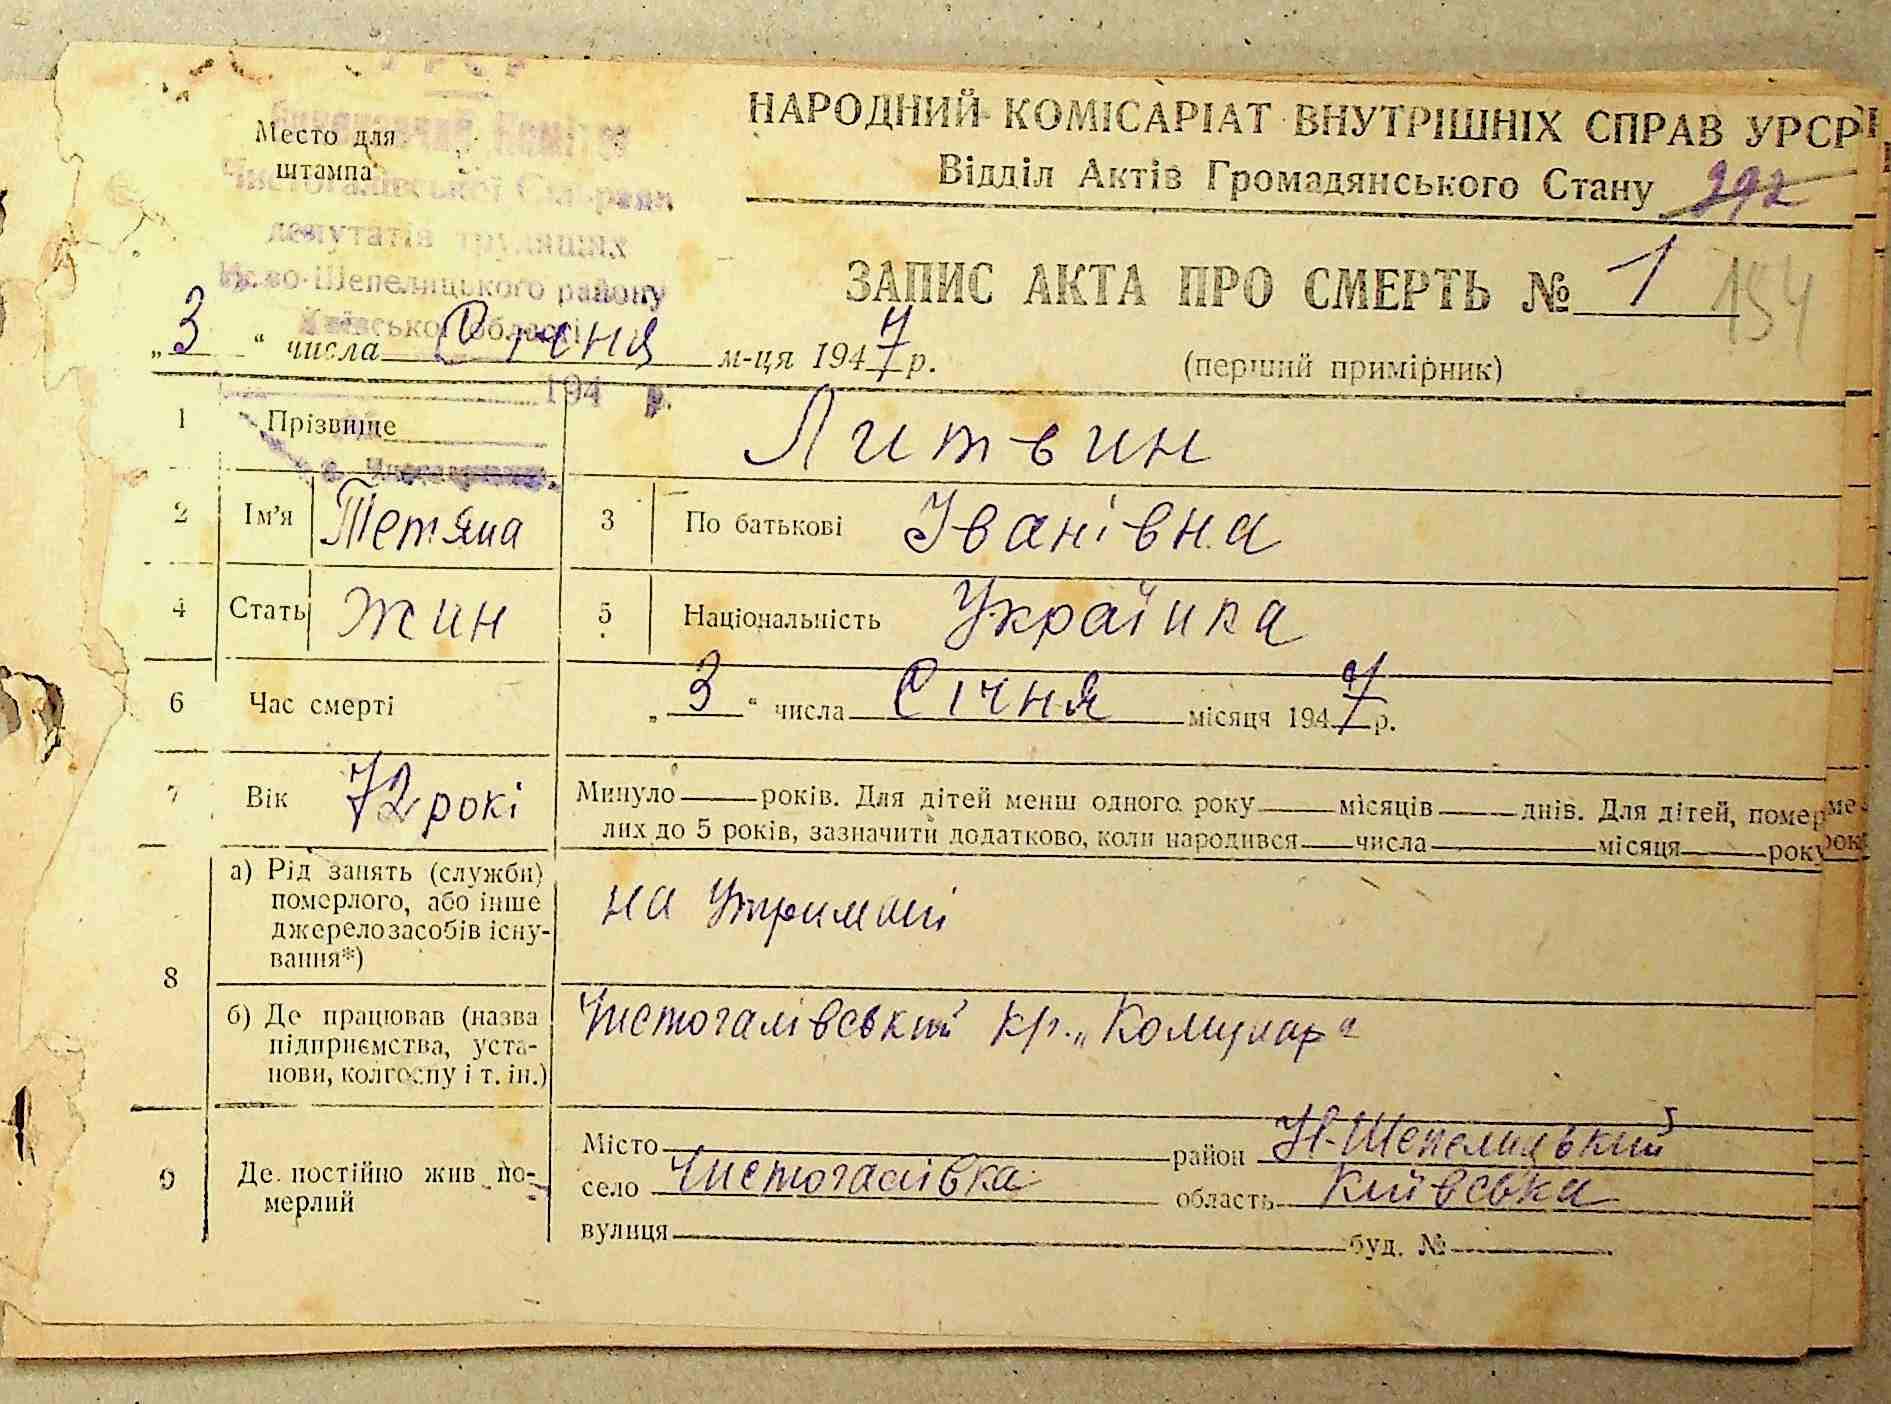 НАРОДНИЙ КОМІСАРІАТ ВНУТРІШНІХ СПРАВ УРСР
Відділ Актів Громадянського Стану 292
Место для
штампа
УРСР
Виконавчий Комітет
Чистогалівської Сільради
депутатів трудящих
Ново-Шепелицького району
Київської області
194 р.
ЗАПИС АКТА ПРО СМЕРТЬ № 1 154
„3“ числа Січня м-ця 1947 р. (перший примірник)
1 Прізвище Литвин
2 Ім'я Тетяна 3 По батькові Іванівна
4 Стать Жин 5 Національність Українка
6 Час смерті „3“ числа Січня місяця 1947 р.
7 Вік 72 рокі Минуло років. Для дітей менш одного року місяців днів. Для дітей, помер-
лих до 5 років, зазначити додатково, коли народився числа місяця року
8 а) Рід занять (служби)
померлого, або інше
джерело засобів існу-
вання*)
на утримані
б) Де працював (назва
підприємства, уста-
нови, колгоспу і т. ін.)
Чистогалівський кр. „Комунар“
9 Де постійно жив по-
мерлий
Місто район Н-Шепелицький
село Чистогалівка область Київська
вулиця буд. №